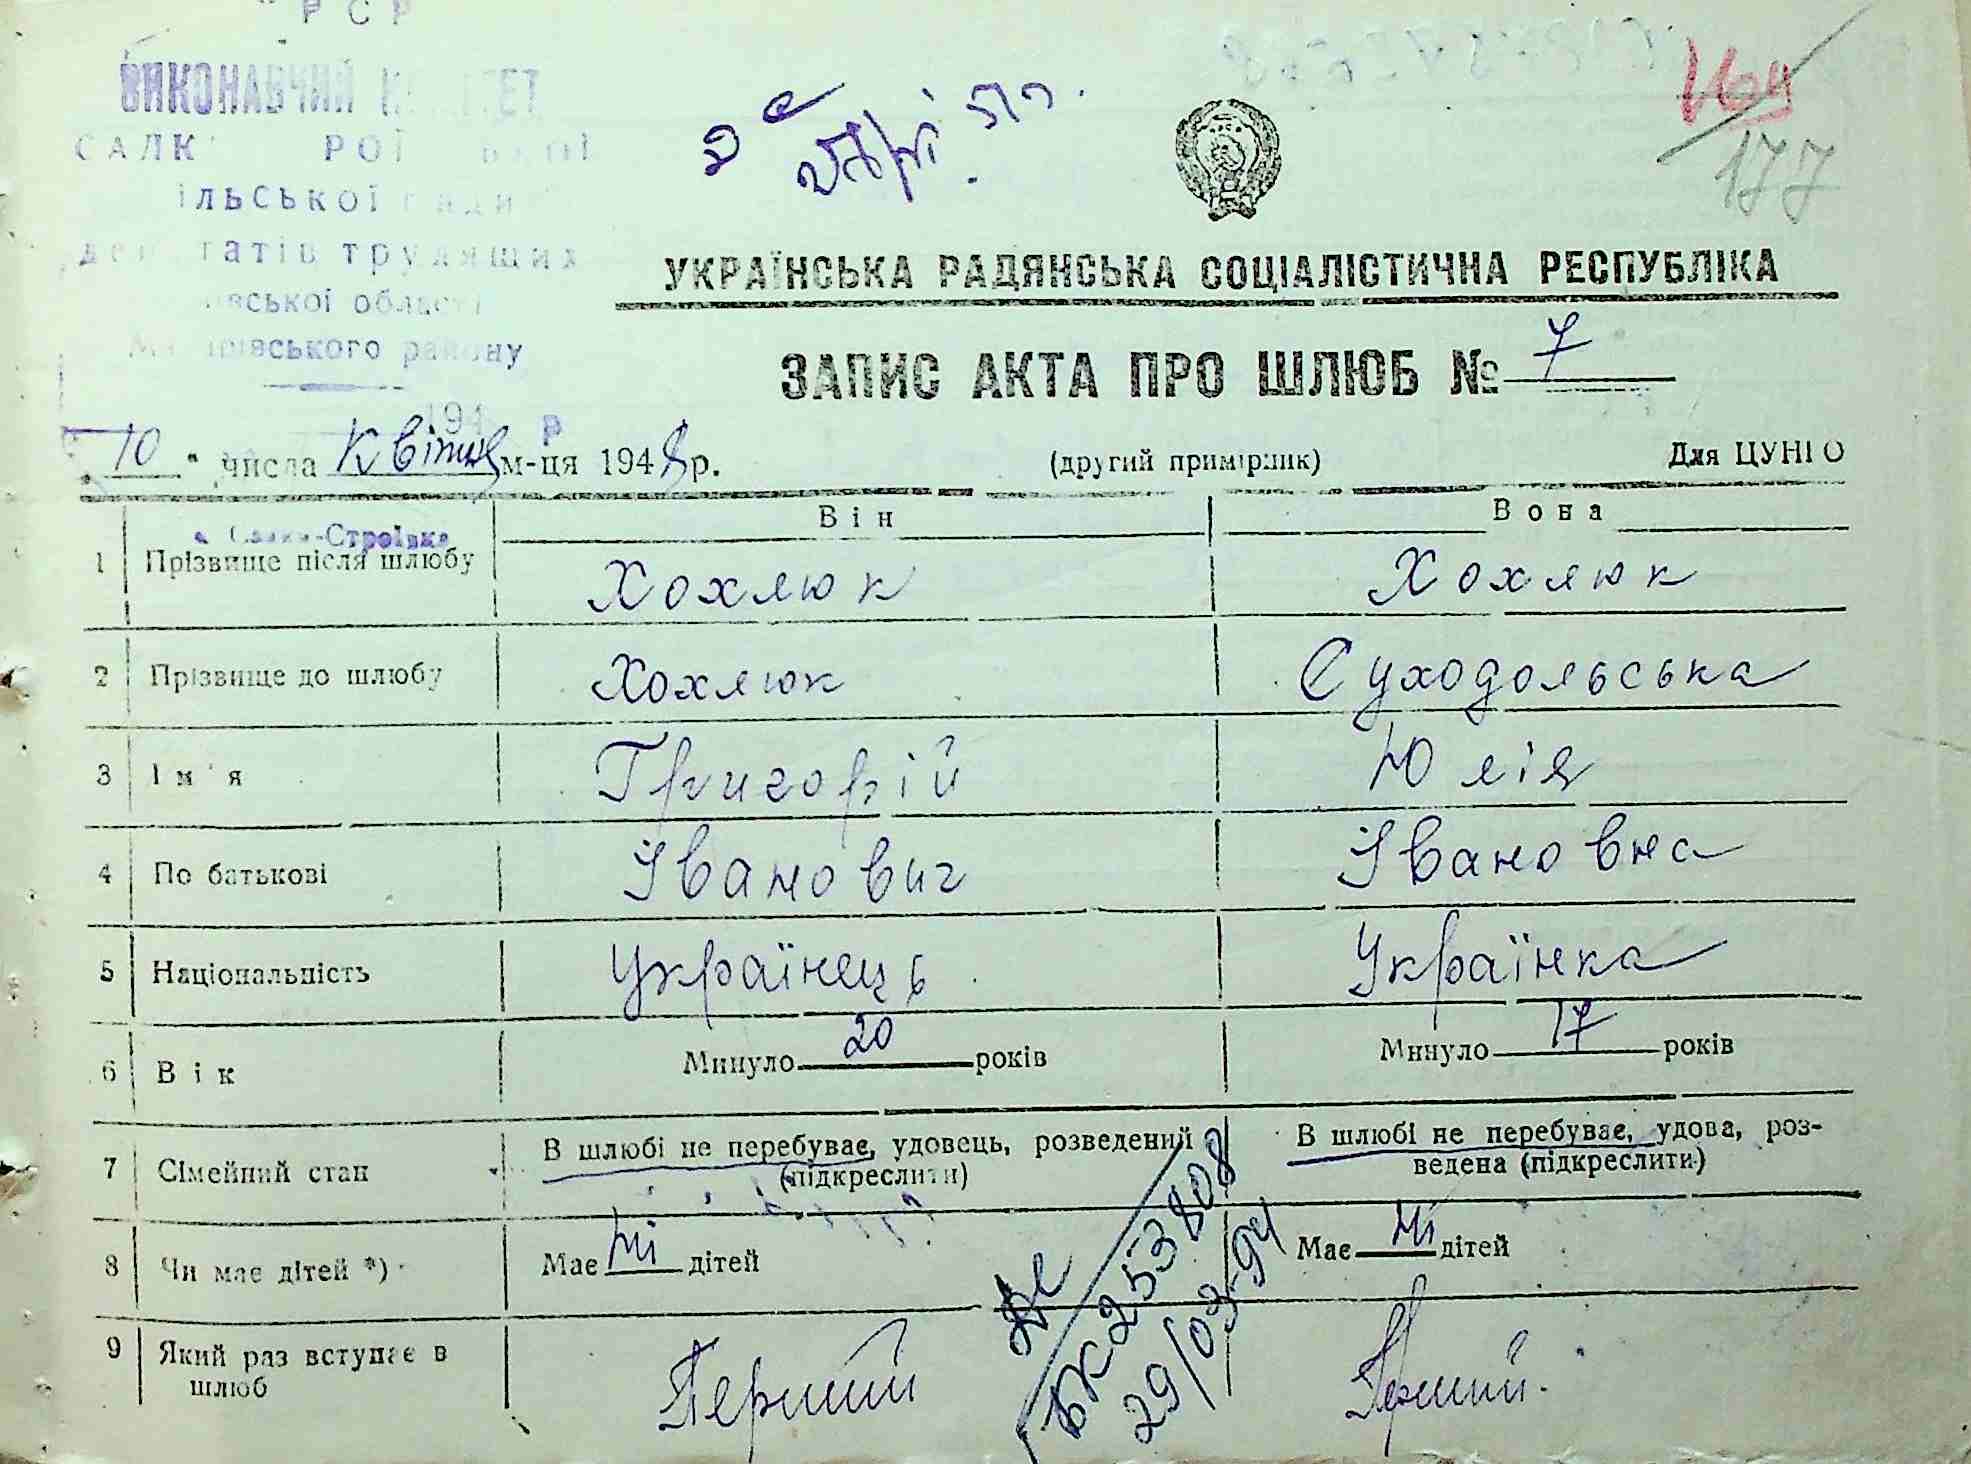 РСР
ВИКОНАВЧИЙ КОМІТЕТ
ільської ради
депутатів трудящих
області
району
177
УКРАЇНСЬКА РАДЯНСЬКА СОЦІАЛІСТИЧНА РЕСПУБЛІКА
ЗАПИС АКТА ПРО ШЛЮБ № 7
194 р
"10" числа Квітня м-ця 1948 р. (другий примірник) Для ЦУНГО
Строївка
Він Вона
1 Прізвище після шлюбу Хохлюк Хохлюк
2 Прізвище до шлюбу Хохлюк Суходольська
3 Ім'я Григорій Юлія
4 По батькові Івановиг Івановна
5 Національність Українець Українка
6 Вік Минуло 20 років Минуло 17 років
7 Сімейний стан В шлюбі не перебуває, удовець, розведений (підкреслити) В шлюбі не перебуває, удова, роз-
ведена (підкреслити)
8 Чи має дітей *) Має ні дітей Має ні дітей
9 Який раз вступає в шлюб Перший Перший.
БК 253808
29/03-94